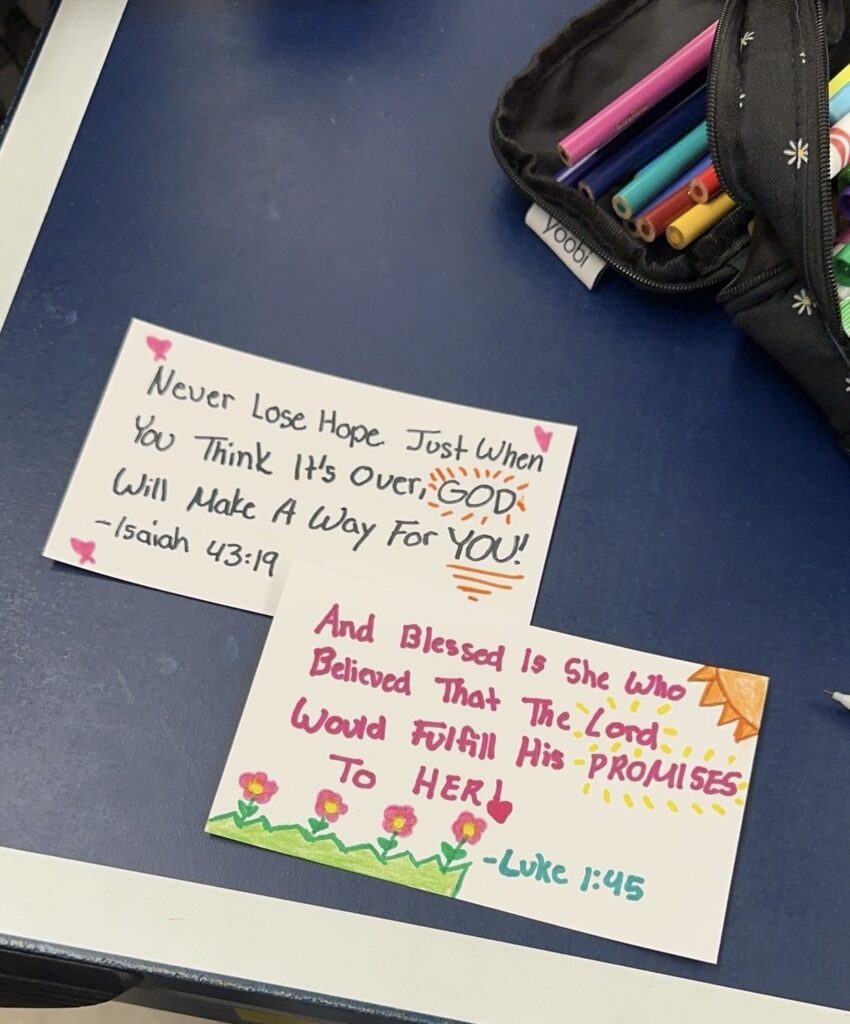 yoobi
Never Lose Hope. Just When
You Think It's Over, GOD
Will Make A Way For YOU!
-Isaiah 43:19
And Blessed Is She Who
Believed That The Lord
Would Fulfill His PROMISES
To HER!
-Luke 1:45